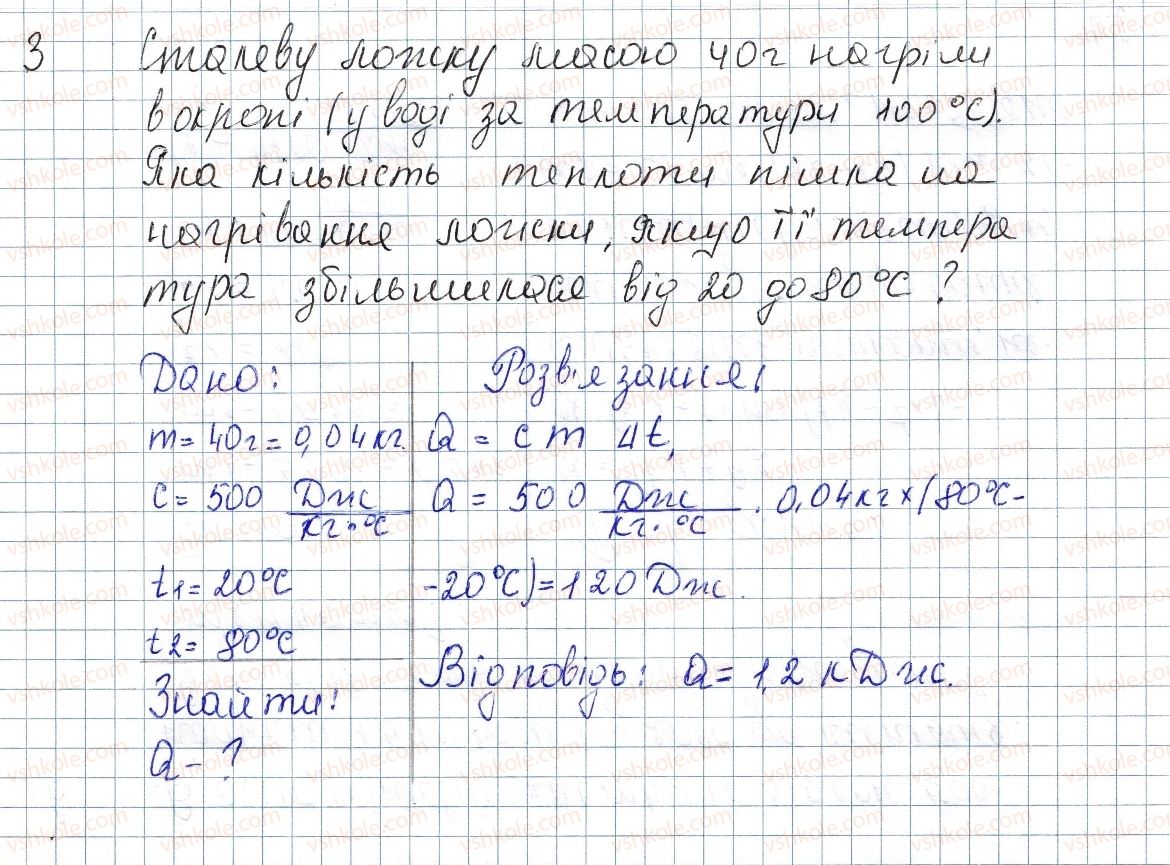 3 Сталеву ложку масою 40г нагріли
в окропі (у воді за температури 100°С).
Яка кількість теплоти пішла на
нагрівання ложки, якщо її темпера
тура збільшилася від 20 до 80°С ?
Дано:
m = 40г = 0,04кг.
c = 500 Дж/кг·°С
t1 = 20°С
t2 = 80°С
Знайти:
Q - ?
Розв'язання:
Q = c m Δt,
Q = 500 Дж/кг·°С · 0,04кг × (80°С -
-20°С) = 120 Дж.
Відповідь: Q = 1,2 кДж.
vshkole.com